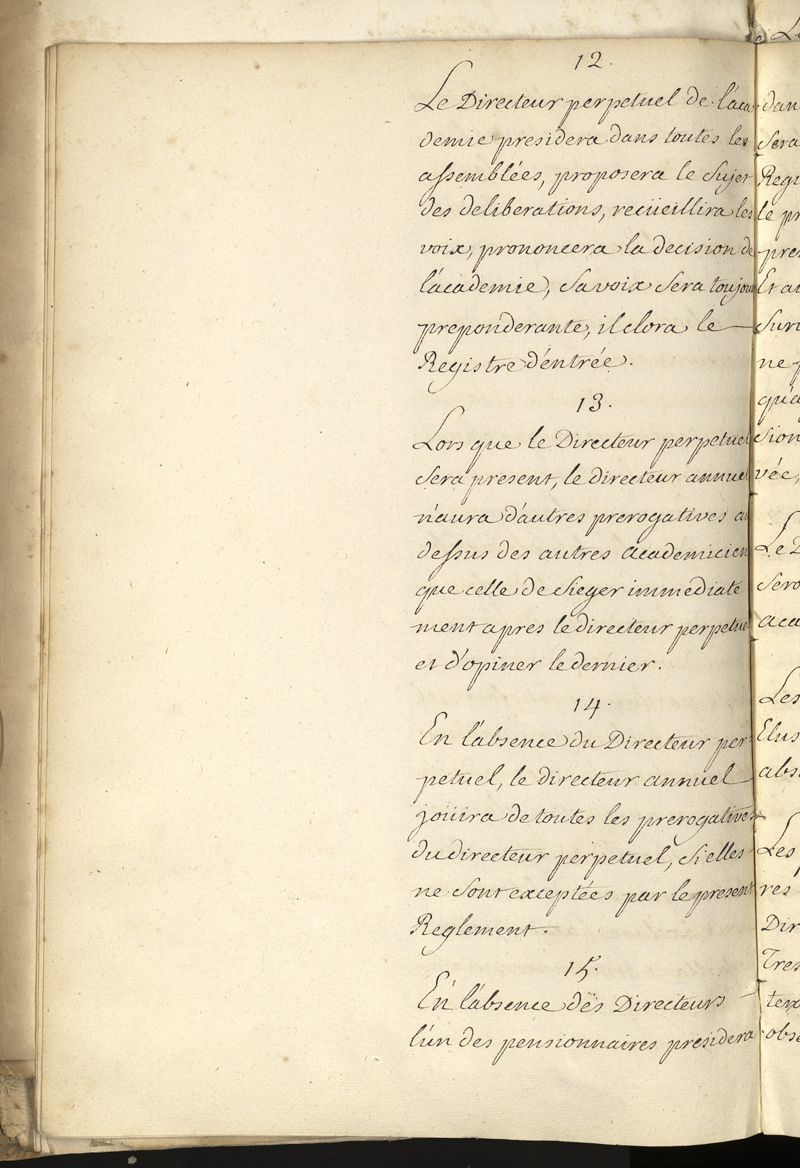 12.
Le Directeur perpetuel de l'aca
demie presidera dans toutes les
assemblées, proposera le Sujet
des deliberations, recüeillira les
voix, prononcera la decision de
l'academie, Sa voix Sera toujou
preponderante, il clora le —
Registre d'entrée.
13.
Lors que le Directeur perpetuel
Sera present, le directeur annuel
n'aura d'autres prerogatives au
dessus des autres academicien
que celle de Sieger immediate
ment apres le directeur perpetuel
et d'opiner le dernier.
14.
En l'absence du Directeur per
petuel, le directeur annuel
joüira de toutes les prerogatives
du directeur perpetuel, Si elles
ne Sont exceptées par le present
Reglement.
15.
En l'absence des Directeurs —
l'un des pensionnaires presidera
dan
Sera
Regi
le pr
pres
Et au
Sur
ne p
qu'a
Sion
vée,
Le D
Sero
aca
Les
Elus
abs
Les
res
Dir
Tres
ten
obse